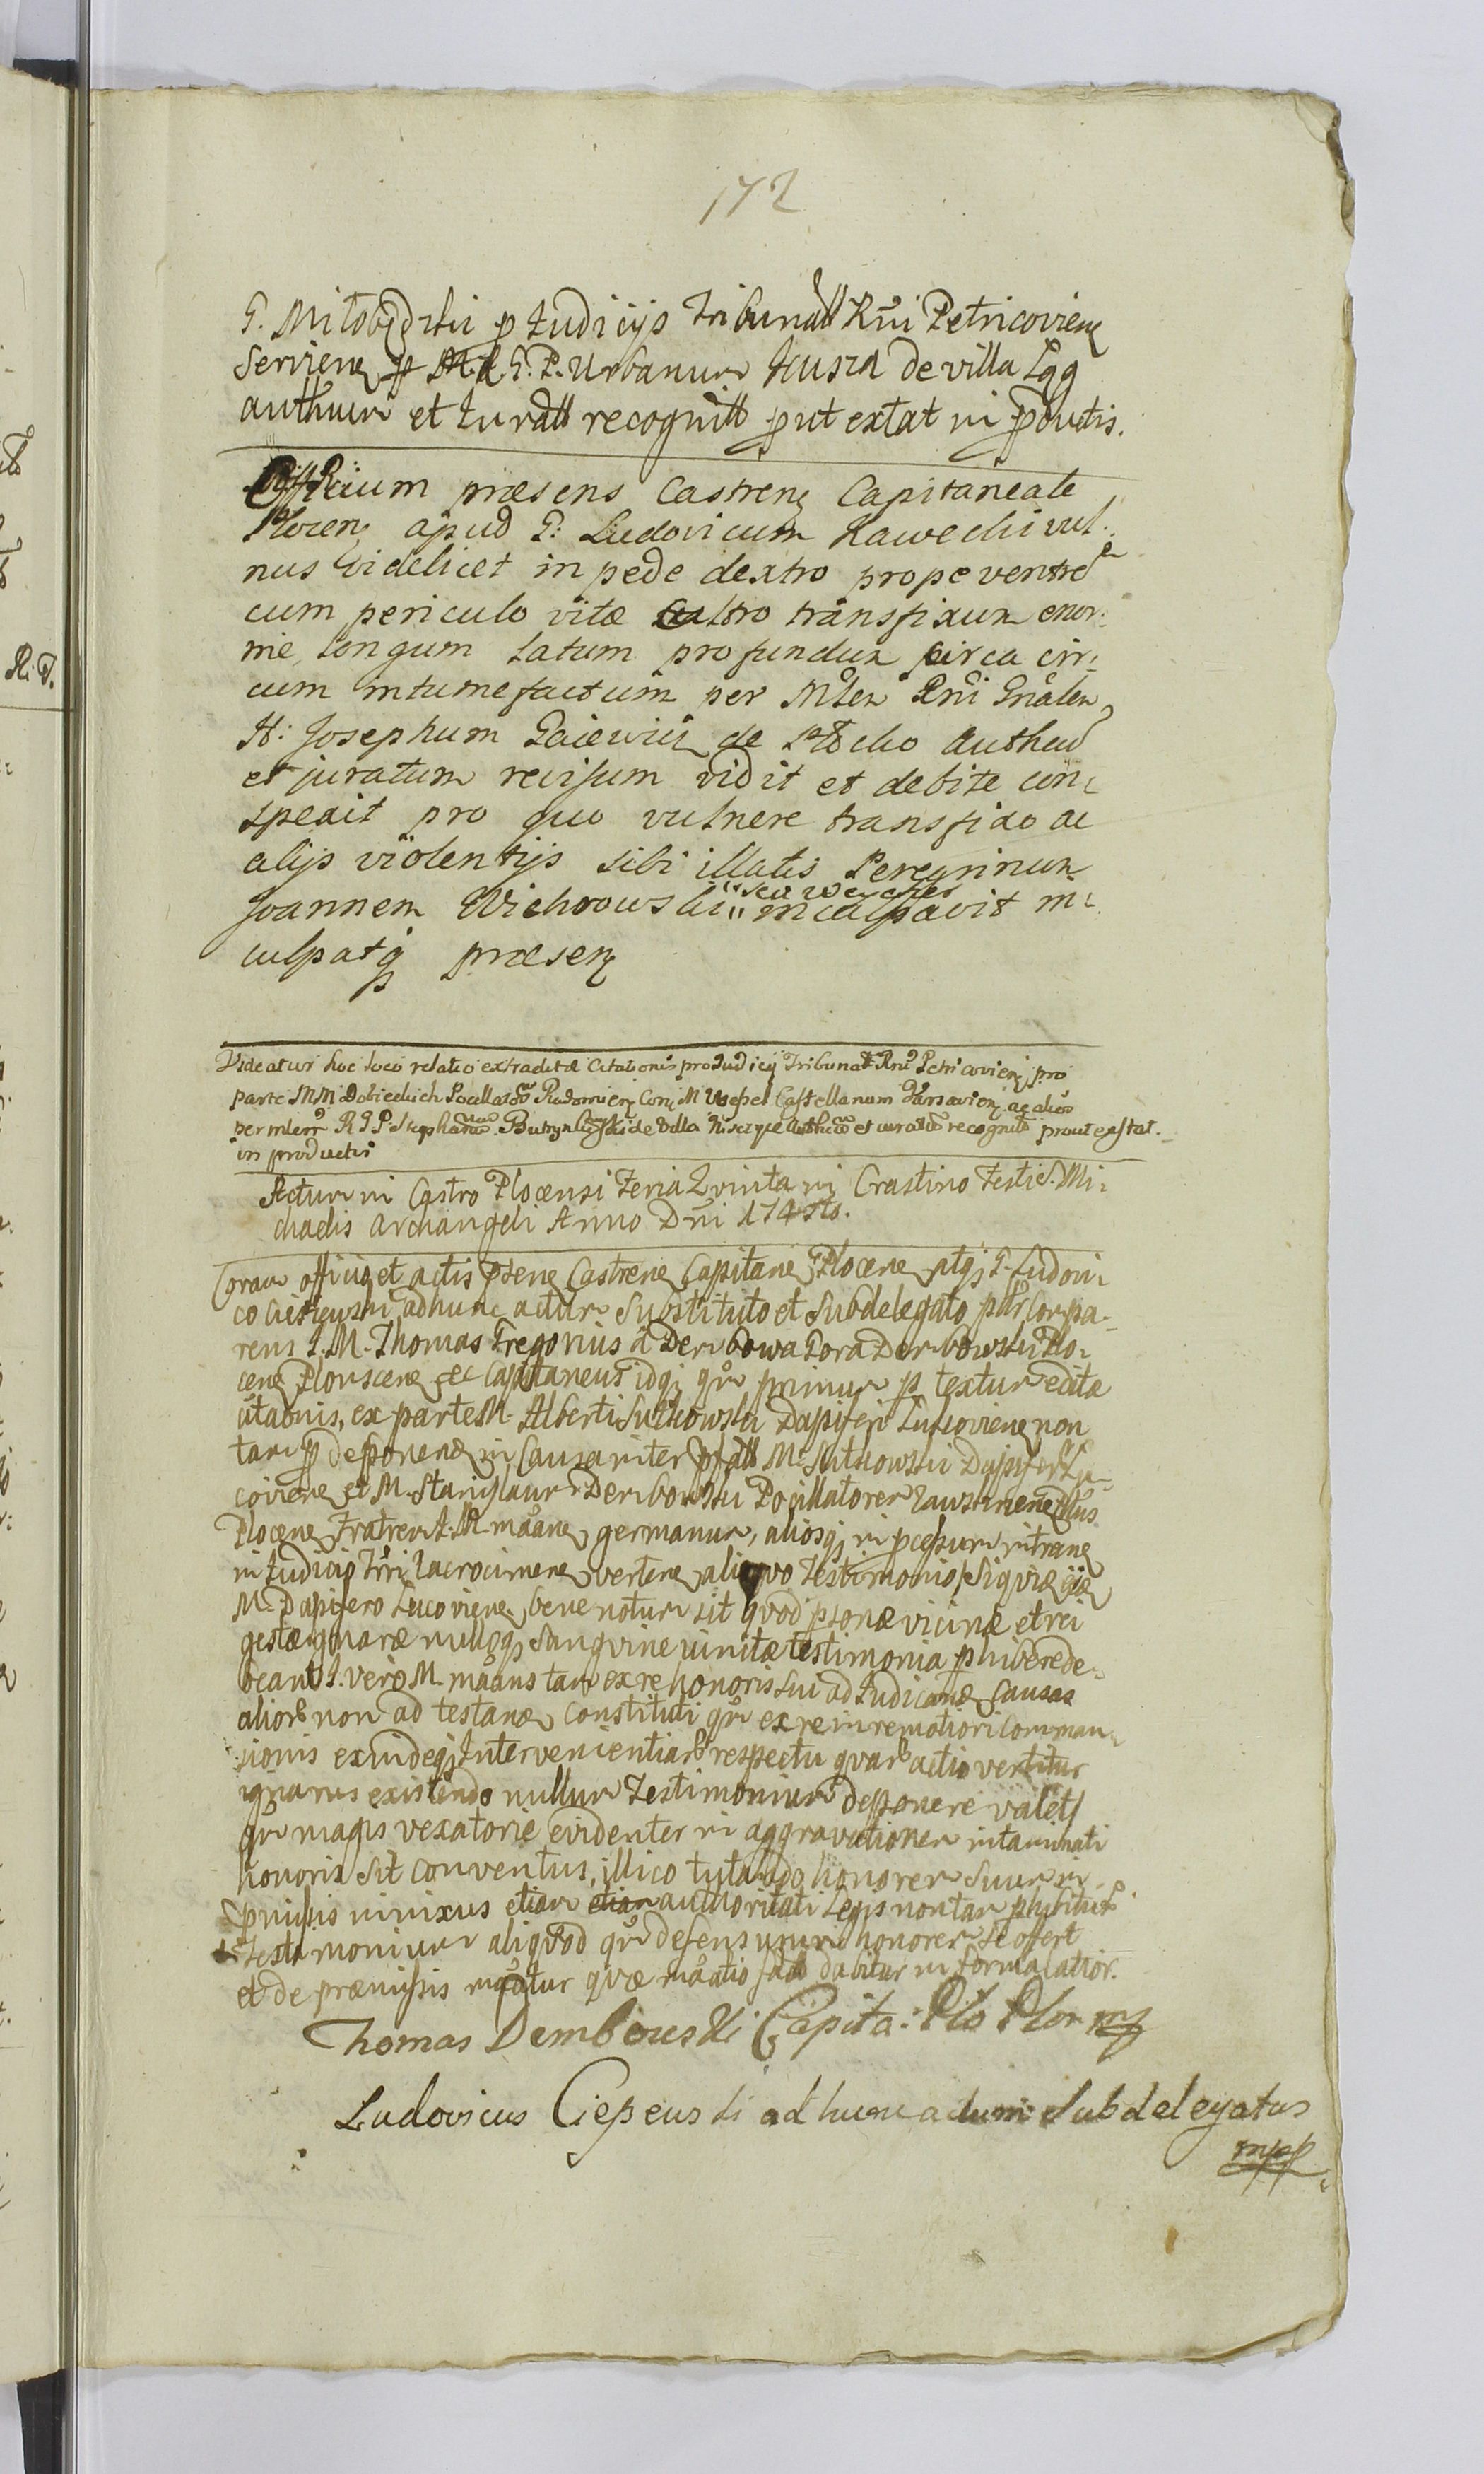 172
G. Miłobędzki p Judicijs Tribunall Rni Petricovien
Servien p M. R. G. P. Urbanum de villa Łęg
authum et Juratt recognitt put extat in poductis.
Officium præsens Castren Capitaneale
Plocen apud G: Ludovicum Rawecki vul:
nus videlicet in pede dextro prope ventre
cum periculo vitæ cultro transfixum enor:
me, longum latum profundum circa cir:
cum intumefactum per Mlem Rni Gnalem
H: Josephum Gaiewicz de Płocko Authum
et juratum revisum vidit et debite con:
spexit pro quo vulnere transfixo ac
alijs violentijs sibi illatis Peregrinum
Joannem Wichrowski "seu Weycher" inculpavit in:
culpatq præsen
Videatur hoc loco relatio extraditæ Citationis pro Judicij Tribunatt Rni Petricovien pro
parte MM Dobieckich Pocillatoru Radomien Con M Castellanum Varsavien ac alios
per mlem R G P Stephanum de Villa authcu et juratu recognita prout exstat
in productis
Actum in Castro Plocensi Feria Qvinta in Crastino Festi S. Mi:
chaelis Archangeli Anno Dni 174
Coram officio et actis psen Castren Capitan Plocen atq G. Ludovi:
co ad hunc actum Substituto et Subdelegato pltr Compa:
rens J. M. Thomas Gregorius a Dembowa Gora Dembowski Plo:
cen Plonscen et Capitaneus idq qm primum p textum editæ
citaonis, ex parte M. Alberti Sutkowski Dapiferi Lukovien non
tam p deponen in Causa inter pfatt M. Sutkowski Dapifer Lu:
covien et M. Stanislaum Dembowski Pocillatorem Zawskrinen
Plocen Fratrem J. M. maan germanum, aliosq in pcessum intran
in Judicio Trri Zacrocimen verten aliqvo testimonio, Siqviæ
M. Dapifero Lucovien bene notum sit qvod psonæ vicinæ et rei
gestæ gnaræ nulloq Sangvine vinctæ testimonia phibere de:
beant J. vero M. maans tam ex re honoris sui ad Judican causas
aliorum non ad testan constituti qm ex re in remotiori comman:
sionis exindeq Intervenientiarum respectu qvarum actio vertitur
ignarus existendo nullum Testimonium deponere valet
qm magis vexatorie evidenter in aggravationem intaminati
honoris sit conventus, illico tutando honorem suum in
pmissis innixus etiam etiam authoritati Legis non tam phibitur
Testimonium aliqvod qm defensurum honorem se offert
et de præmissis maatur qvæ maatio datt dabitur in forma latior.
Thomas Dembowski Capita: Plo Plon mp
Ludovicus Ciepeuski ad hunc actum Subdelegatus
mpp
R. P.